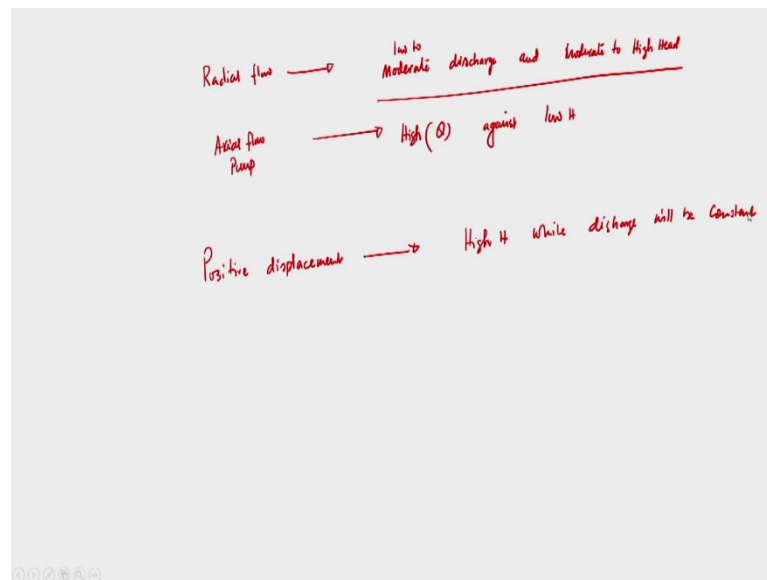 low to
Radial flow → Moderate discharge and Moderate to High Head
Axial flow → High (Q) against low H
Pump
Positive displacement → High H while discharge will be constant